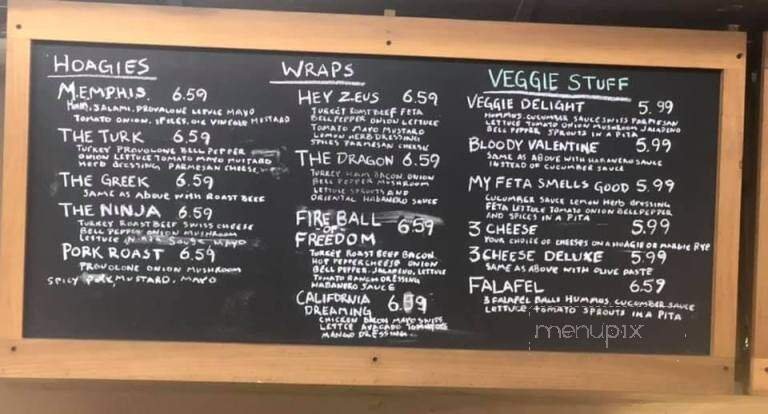 HOAGIES
MEMPHIS 6.59
HAM, SALAMI, PROVALONE LETTUCE MAYO
TOMATO ONION, SPICES, OIL VINEGAR MUSTARD
THE TURK 6.59
TURKEY PROVOLONE BELL PEPPER
ONION LETTUCE TOMATO MAYO MUSTARD
HERB DRESSING PARMESAN CHEESE
THE GREEK 6.59
SAME AS ABOVE WITH ROAST BEEF
THE NINJA 6.59
TURKEY ROAST BEEF SWISS CHEESE
BELL PEPPER ONION MUSHROOM
LETTUCE SAUSE MAYO
PORK ROAST 6.59
PROVOLONE ONION MUSHROOM
SPICY MUSTARD, MAYO
WRAPS
HEY ZEUS 6.59
TURKEY ROAST BEEF FETA
BELL PEPPER ONION LETTUCE
TOMATO MAYO MUSTARD
LEMON HERB DRESSING
SPICES PARMESAN CHEESE
THE DRAGON 6.59
TURKEY HAM BACON, ONION
BELL PEPPER MUSHROOM
LETTUCE SPROUTS AND
ORIENTAL HABANERO SAUCE
FIRE BALL
OF 6.59
FREEDOM
TURKEY ROAST BEEF BACON
HOT PEPPER CHEESE ONION
BELL PEPPER, JALAPENO, LETTUCE
TOMATO RANCH DRESSING
HABANERO SAUCE
CALIFORNIA
DREAMING 6.59
CHICKEN BACON MAYO SWISS
LETTCE AVOCADO TOMATOE
MANGO DRESSING
VEGGIE STUFF
VEGGIE DELIGHT 5.99
HUMMUS, CUCUMBER SAUCE SWISS PARMESAN
LETTUCE TOMATO ONION MUSHROOM JALAPENO
BELL PEPPER SPROUTS IN A PITA
BLOODY VALENTINE 5.99
SAME AS ABOVE WITH HABANERO SAUCE
INSTEAD OF CUCUMBER SAUCE
MY FETA SMELLS GOOD 5.99
CUCUMBER SAUCE LEMON HERB DRESSING
FETA LETTUCE TOMATO ONION BELL PEPPER
AND SPICES IN A PITA
3 CHEESE 5.99
YOUR CHOICE OF CHEESES ON A HOAGIE OR MARBLE RYE
3 CHEESE DELUXE 5.99
SAME AS ABOVE WITH OLIVE PASTE
FALAFEL 6.59
3 FALAFEL BALLS HUMMUS, CUCUMBER SAUCE
LETTUCE TOMATO SPROUTS IN A PITA
menupix